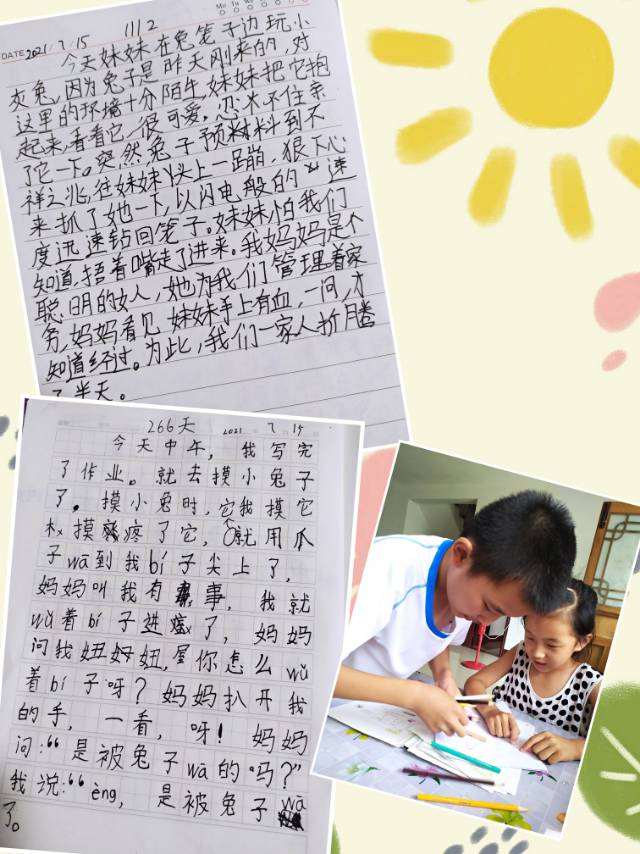 DATE 2021/7/15 1112
今天妹妹在兔笼子边玩小
灰兔,因为兔子是昨天刚来的,对
这里的环境十分陌生,妹妹把它抱
起来,看看它,很可爱,忍不住亲
了它一下。突然兔子预料到不
祥之兆,往妹妹头上一蹦,狠下心
来抓了她一下,以闪电般的速
度迅速钻回笼子。妹妹怕我们
知道,捂着嘴走了进来。我妈妈是个
聪明的女人,她为我们管理着家
务,妈妈看见妹妹手上有血,一问,才
知道经过。为此,我们一家人折腾
了半天。
266天
2021 7 14
今天中午,我写完
了作业。就去摸小兔子
了。摸小兔时,我摸它
摸疼了它,它就用爪
子wā到我bí子尖上了,
妈妈叫我有事,我就
wǔ着bí子进了,妈妈
问我妞妞,你怎么wǔ
着bí子呀?妈妈扒开我
的手,一看,呀!妈妈
问:“是被兔子wā的吗?”
我说:“èng,是被兔子wā
了。